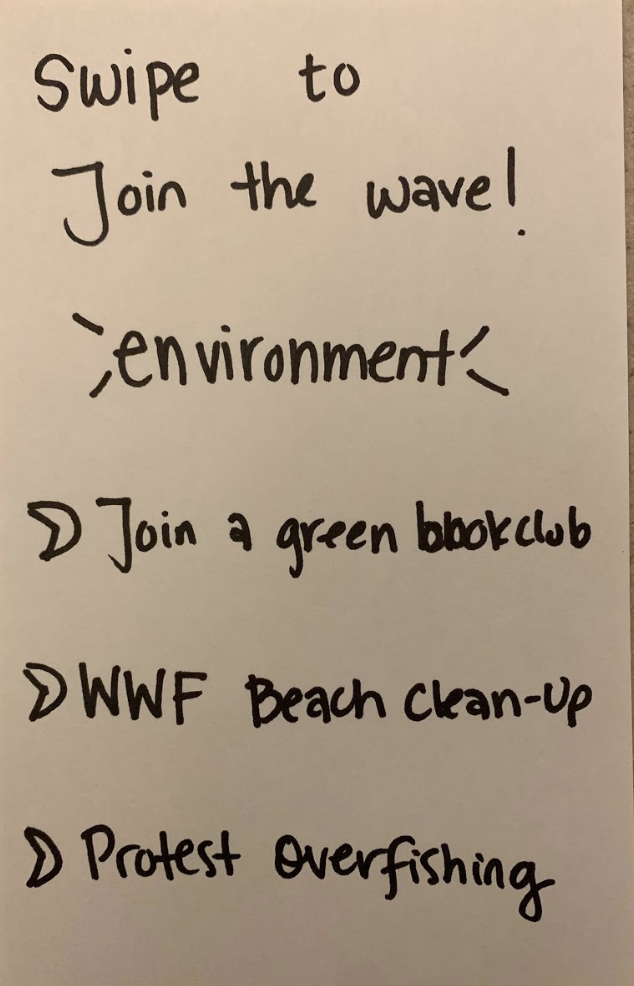 Swipe to
Join the wave!
environment
Join a green bookclub
WWF Beach clean-up
Protest overfishing